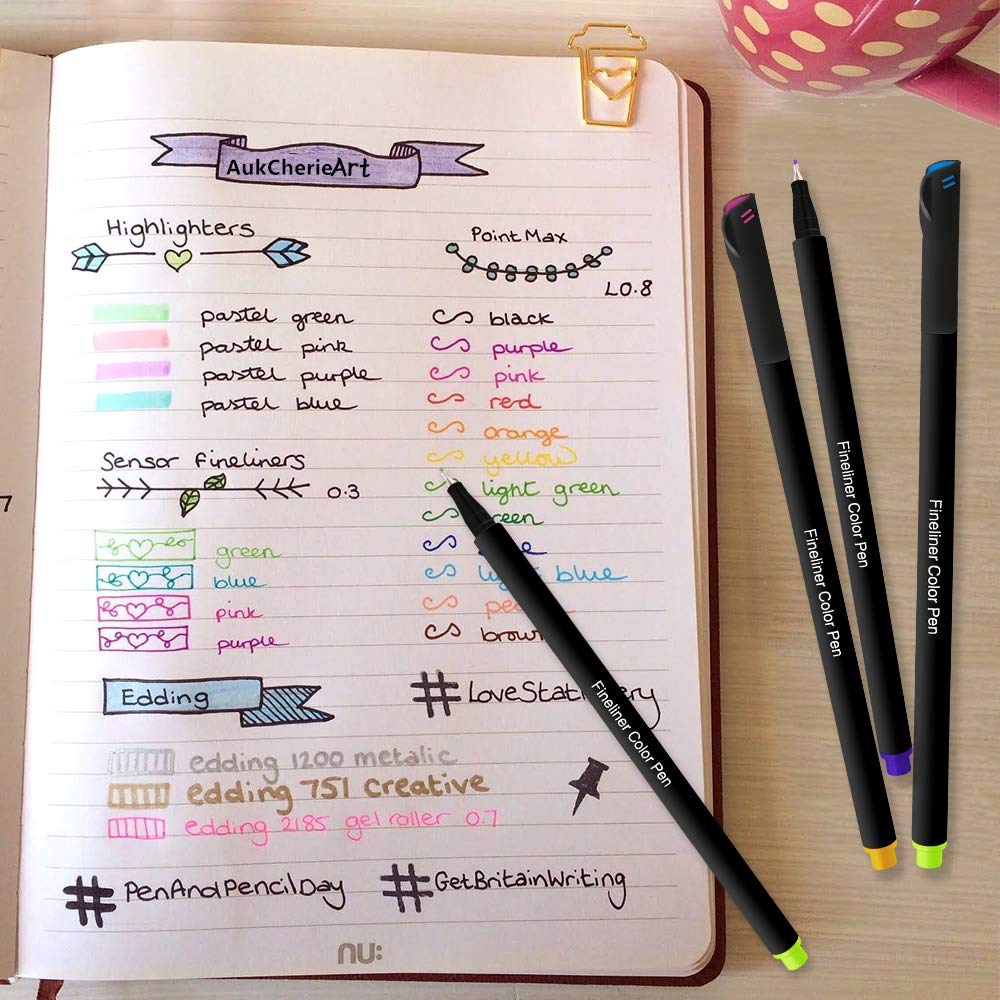 AukCherieArt
Highlighters
pastel green
pastel pink
pastel purple
pastel blue
Sensor Fineliners
0.3
green
blue
pink
purple
Point Max
L0.8
black
purple
pink
red
orange
yellow
light green
green
light blue
brown
Edding
edding 1200 metalic
edding 751 creative
edding 2185 gel roller 0.7
#LoveStationery
#PenAndPencilDay
#GetBritainWriting
nu:
7
Fineliner Color Pen
Fineliner Color Pen
Fineliner Color Pen
Fineliner Color Pen